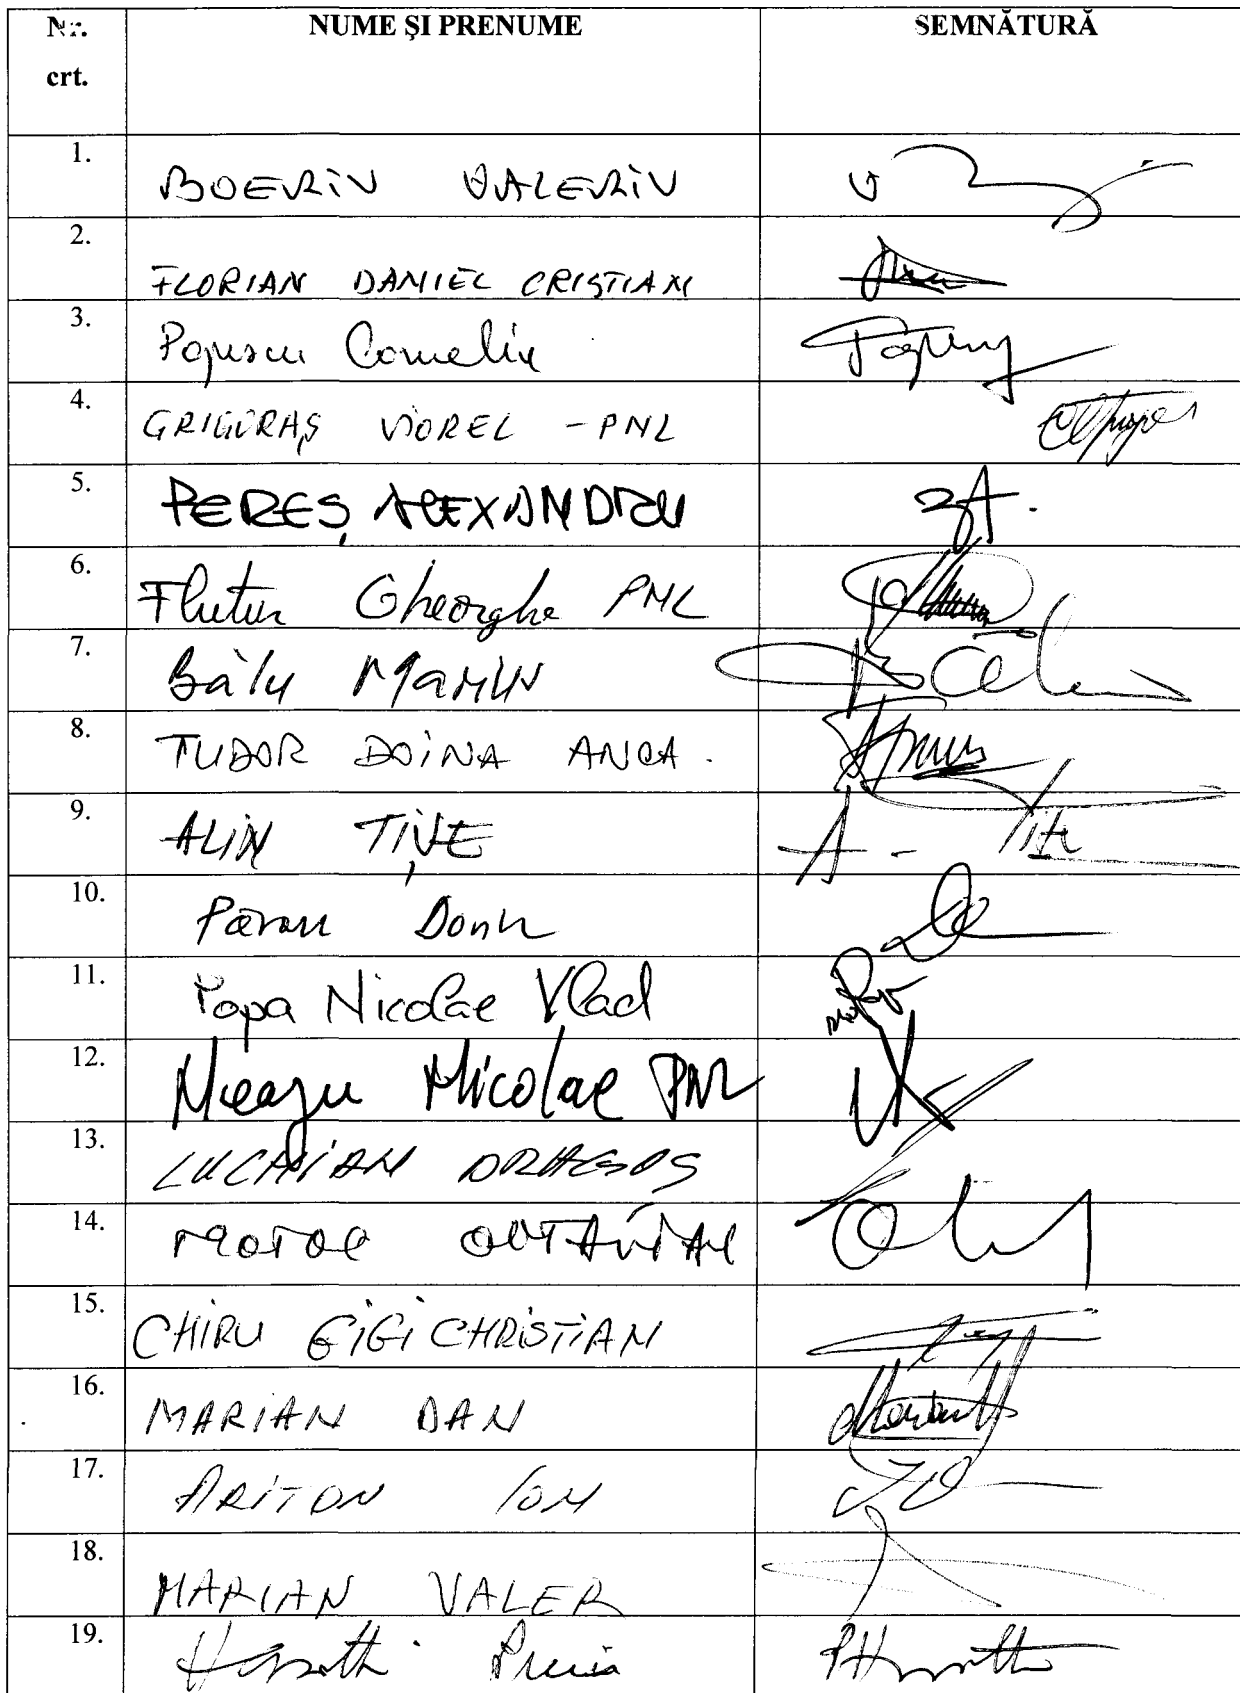 Nr. crt. NUME ȘI PRENUME SEMNĂTURĂ
1. BOERIU VALERIU
2. FLORIAN DANIEL CRISTIAN
3. Popescu Corneliu
4. GRIGORAȘ VIOREL - PNL
5. PEREȘ ALEXANDRU
6. Flutur Gheorghe PNL
7. Bâlu Marin
8. TUDOR DOINA ANCA.
9. ALIN TIȘE
10.
11. Popa Nicolae Vlad
12. Neagu Nicolae PNL
13. LUCHIAN DRAGOȘ
14. MOTOC OCTAVIAN
15. CHIRU GIGI CHRISTIAN
16. MARIAN DAN
17. ARITON ION
18. MARIAN VALER
19.